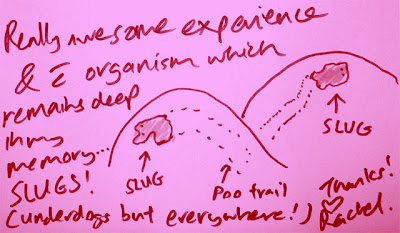 Really awesome experience
& the organism which
remains deep
in my
memory...
SLUGS!
(underdogs but everywhere!)
SLUG
SLUG
Poo trail
Thanks!
Rachel.